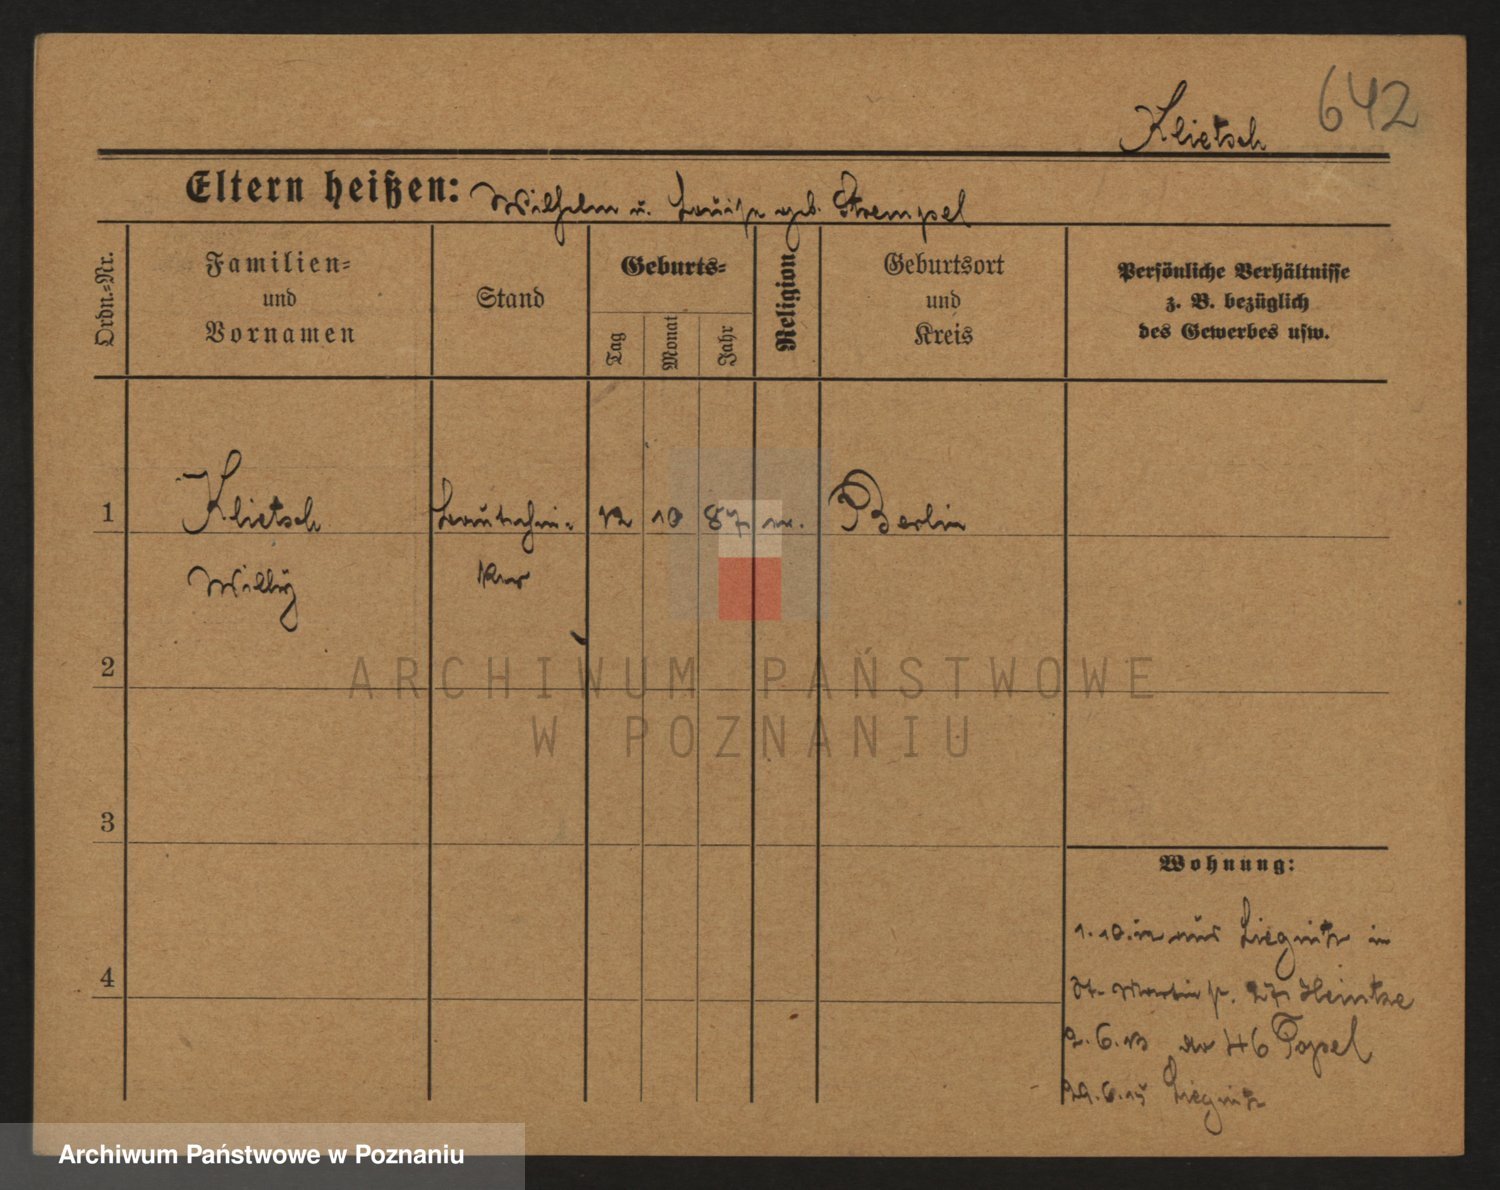 642
Klietsch
Eltern heißen: Wilhelm u. Louise geb. Strempel
Ordn.-Nr.
Familien-
und
Vornamen
Stand
Geburts-
Tag
Monat
Jahr
Religion
Geburtsort
und
Kreis
Persönliche Verhältnisse
z. B. bezüglich
des Gewerbes usw.
1 Klietsch 12 10 87 Berlin
Willy
2
ARCHIWUM PAŃSTWOWE
W POZNANIU
3
4
Wohnung:
1.10.12 aus Liegnitz in
St. Martinstr. 27 Heintze
2.6.13 46 Topel
29.6.15 Liegnitz
Archiwum Państwowe w Poznaniu